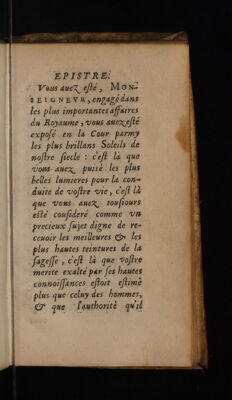 EPISTRE.
Vous auez esté, MON-
SEIGNEVR, engagé dans
les plus importantes affaires
du Royaume, vous auez esté
exposé en la Cour parmy
les plus brillans Soleils de
nostre siecle : c'est là que
vous auez puisé les plus
belles lumieres pour la con-
duite de vostre vie, c'est là
que vous auez tousiours
esté consideré comme vn
precieux sujet digne de re-
ceuoir les meilleures & les
plus hautes teintures de la
sagesse, c'est là que vostre
merite exalté par ses hautes
connoissances estoit estimé
plus que celuy des hommes,
& que l'authorité qu'il